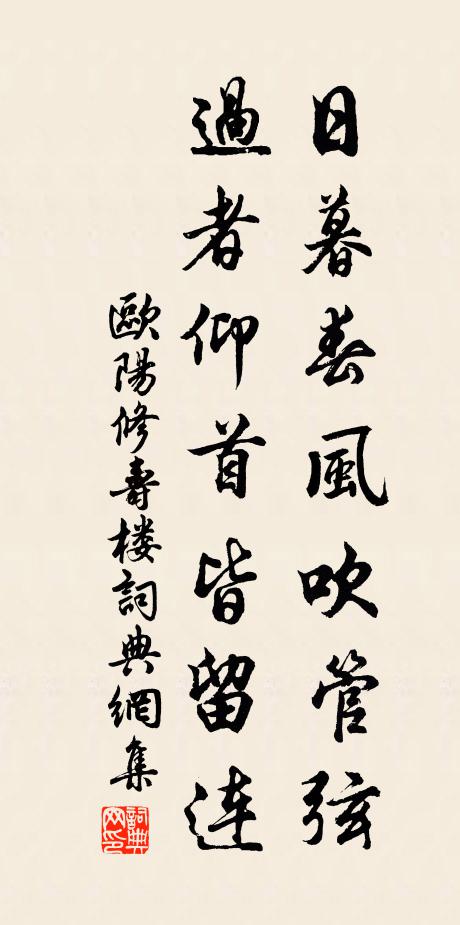 日暮春風吹管弦
過者仰首皆留连
歐陽修壽楼詞典網集
詞典网印